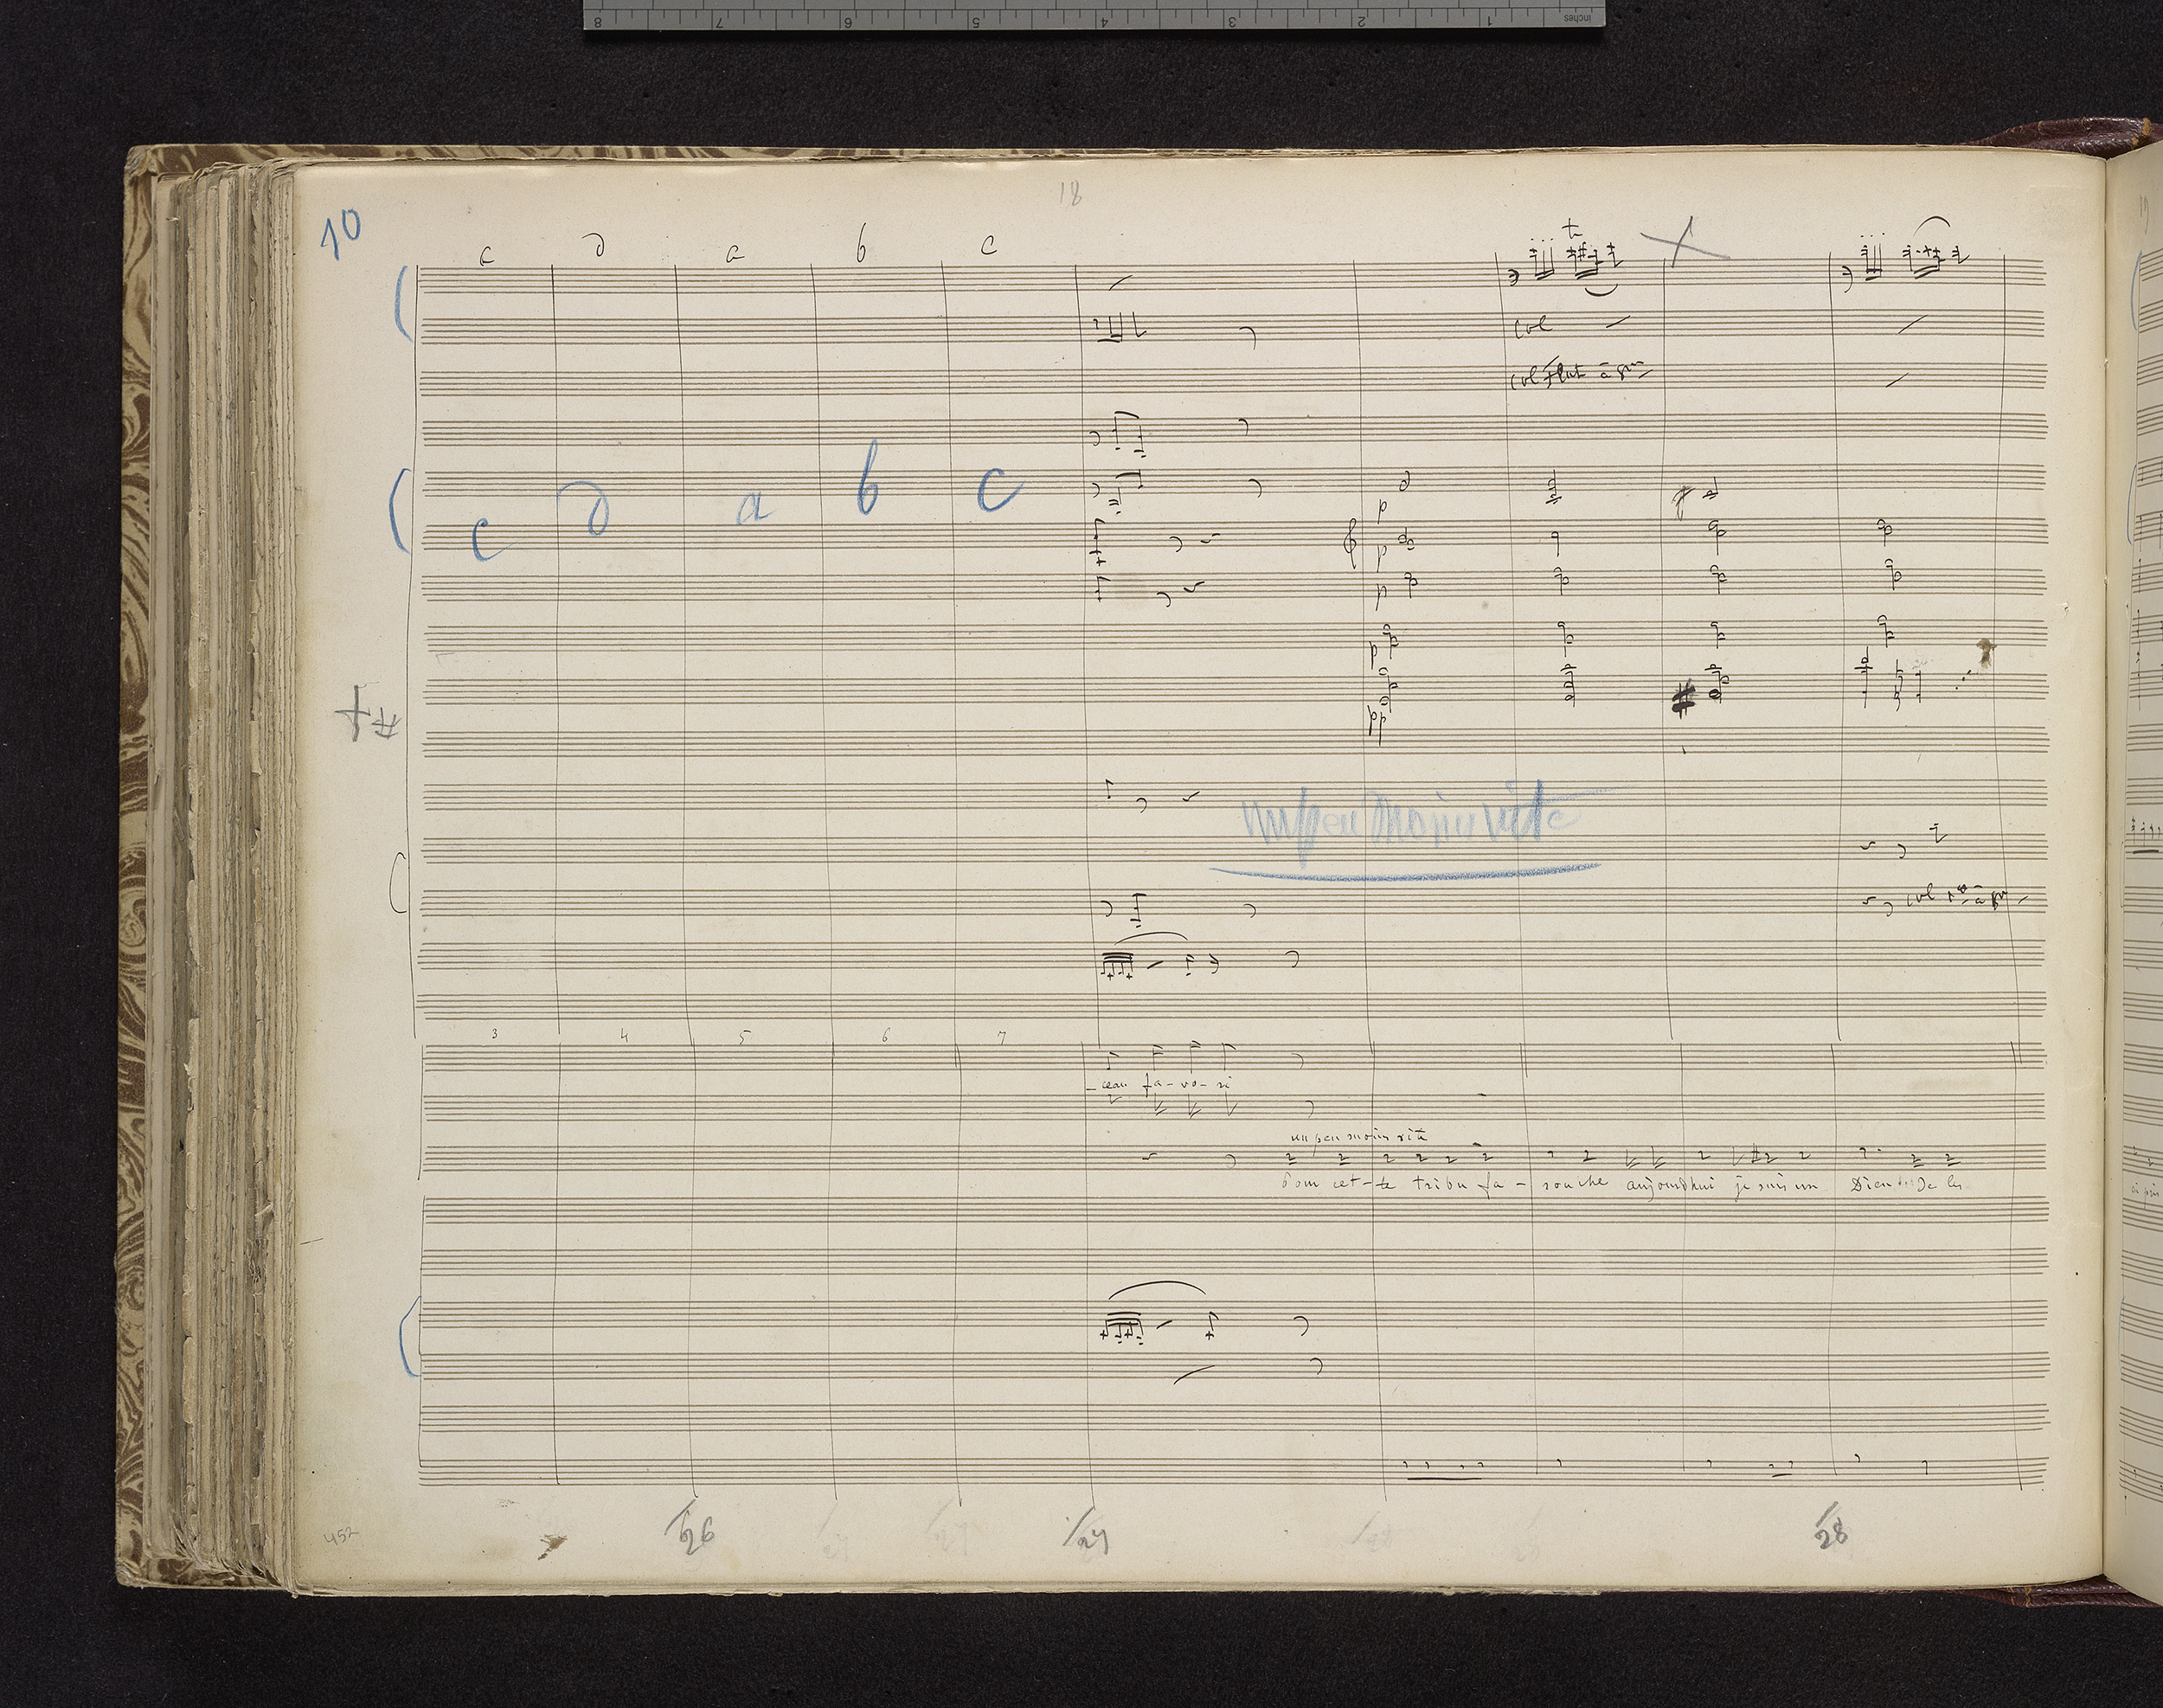 inches 1 2 3 4 5 6 7 8
18
10
c d a b c
col
col Flut à 8va
c d a b c
p
p
p
p
pp
un peu moins vite
col
3 4 5 6 7
-ceau fa-vo-ri
un peu moins vite
Pour cet-te tribu fa-rouche aujourdhui je suis un Dieu Je les
26 27 28
452